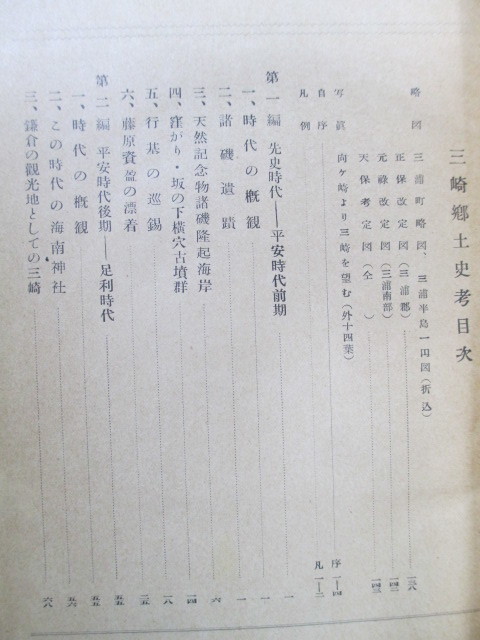 三崎鄕土史考目次
略圖 三浦町略圖、三浦半島一円図(折込)
正保改定図(三浦郡) 一三八
元祿改定図(三浦南部) 一四二
天保考定図(仝 ) 一四三
写眞 向ケ崎より三崎を望む(外十四葉)
自序 序一―四
凡例 凡一―二
第一編 先史時代――平安時代前期 一
一、時代の槪観 一
二、諸磯遺蹟 一
三、天然記念物諸磯隆起海岸 六
四、窪がり・坂の下橫穴古墳群 一四
五、行基の巡錫 一八
六、藤原資盈の漂着 二五
第二編 平安時代後期――足利時代 五五
一、時代の槪観 五五
二、この時代の海南神社 五六
三、鎌倉の観光地としての三崎 六八